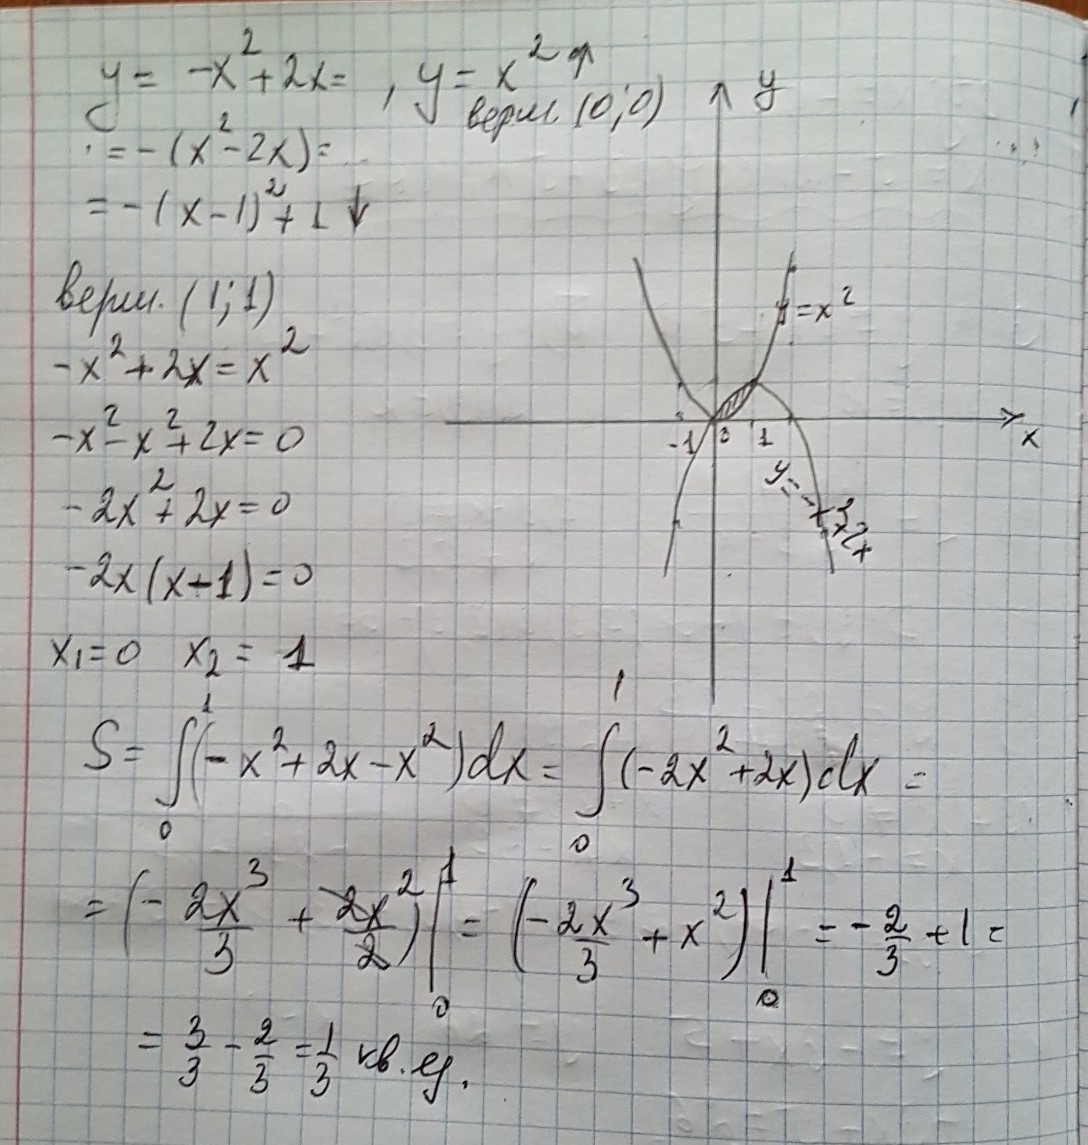 y = -x²+2x= , y = x² ↑
верш. (0;0)
= -(x²-2x)=
= -(x-1)²+1 ↓
верш. (1;1)
-x²+2x=x²
-x²-x²+2x=0
-2x²+2x=0
-2x(x-1)=0
x₁=0 x₂= 1
y
y=x²
-1 0 1 x
y=-x²+2x
S= ∫₀¹(-x²+2x-x²)dx = ∫₀¹(-2x²+2x)dx =
= (-2x³/3 + 2x²/2)|₀¹ = (-2x³/3 + x²)|₀¹ = -2/3 +1=
= 3/3 - 2/3 = 1/3 кв. ед.